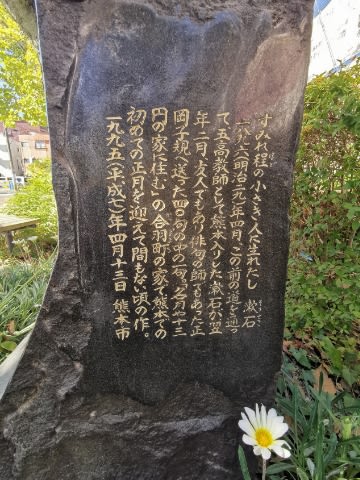 すみれ程の小さき人に生れたし 漱石
一八九六(明治二九)年四月、この前の道を通っ
て五高教師として熊本入りした漱石が翌
年二月、友人でもあり俳句の師でもあった正
岡子規へ送った四〇句の中の一句。「名月や十三
円の家に住む」の合羽町の家で、熊本での
初めての正月を迎えて間もない頃の作。
一九九五(平成七)年四月十三日 熊本市